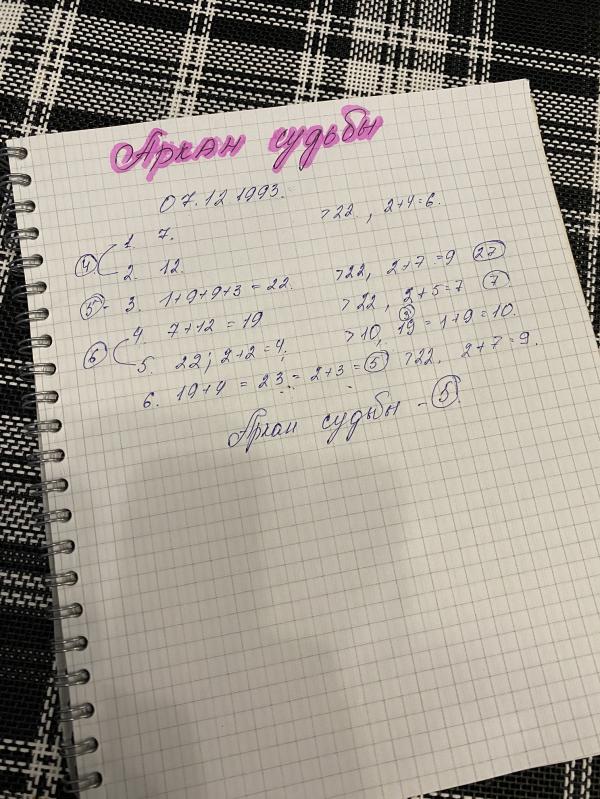 Аркан судьбы
07.12.1993.
>22, 2+4=6.
④ 1. 7.
2. 12.
⑤- 3. 1+9+9+3=22. >22, 2+7=9 ㉗
⑥ 4. 7+12=19 >22, 2+5=7 ⑦
5. 22; 2+2=4; >10, 19=1+9=10.
6. 19+4=23=2+3=⑤ >22. 2+7=9.
Аркан судьбы - ⑤.